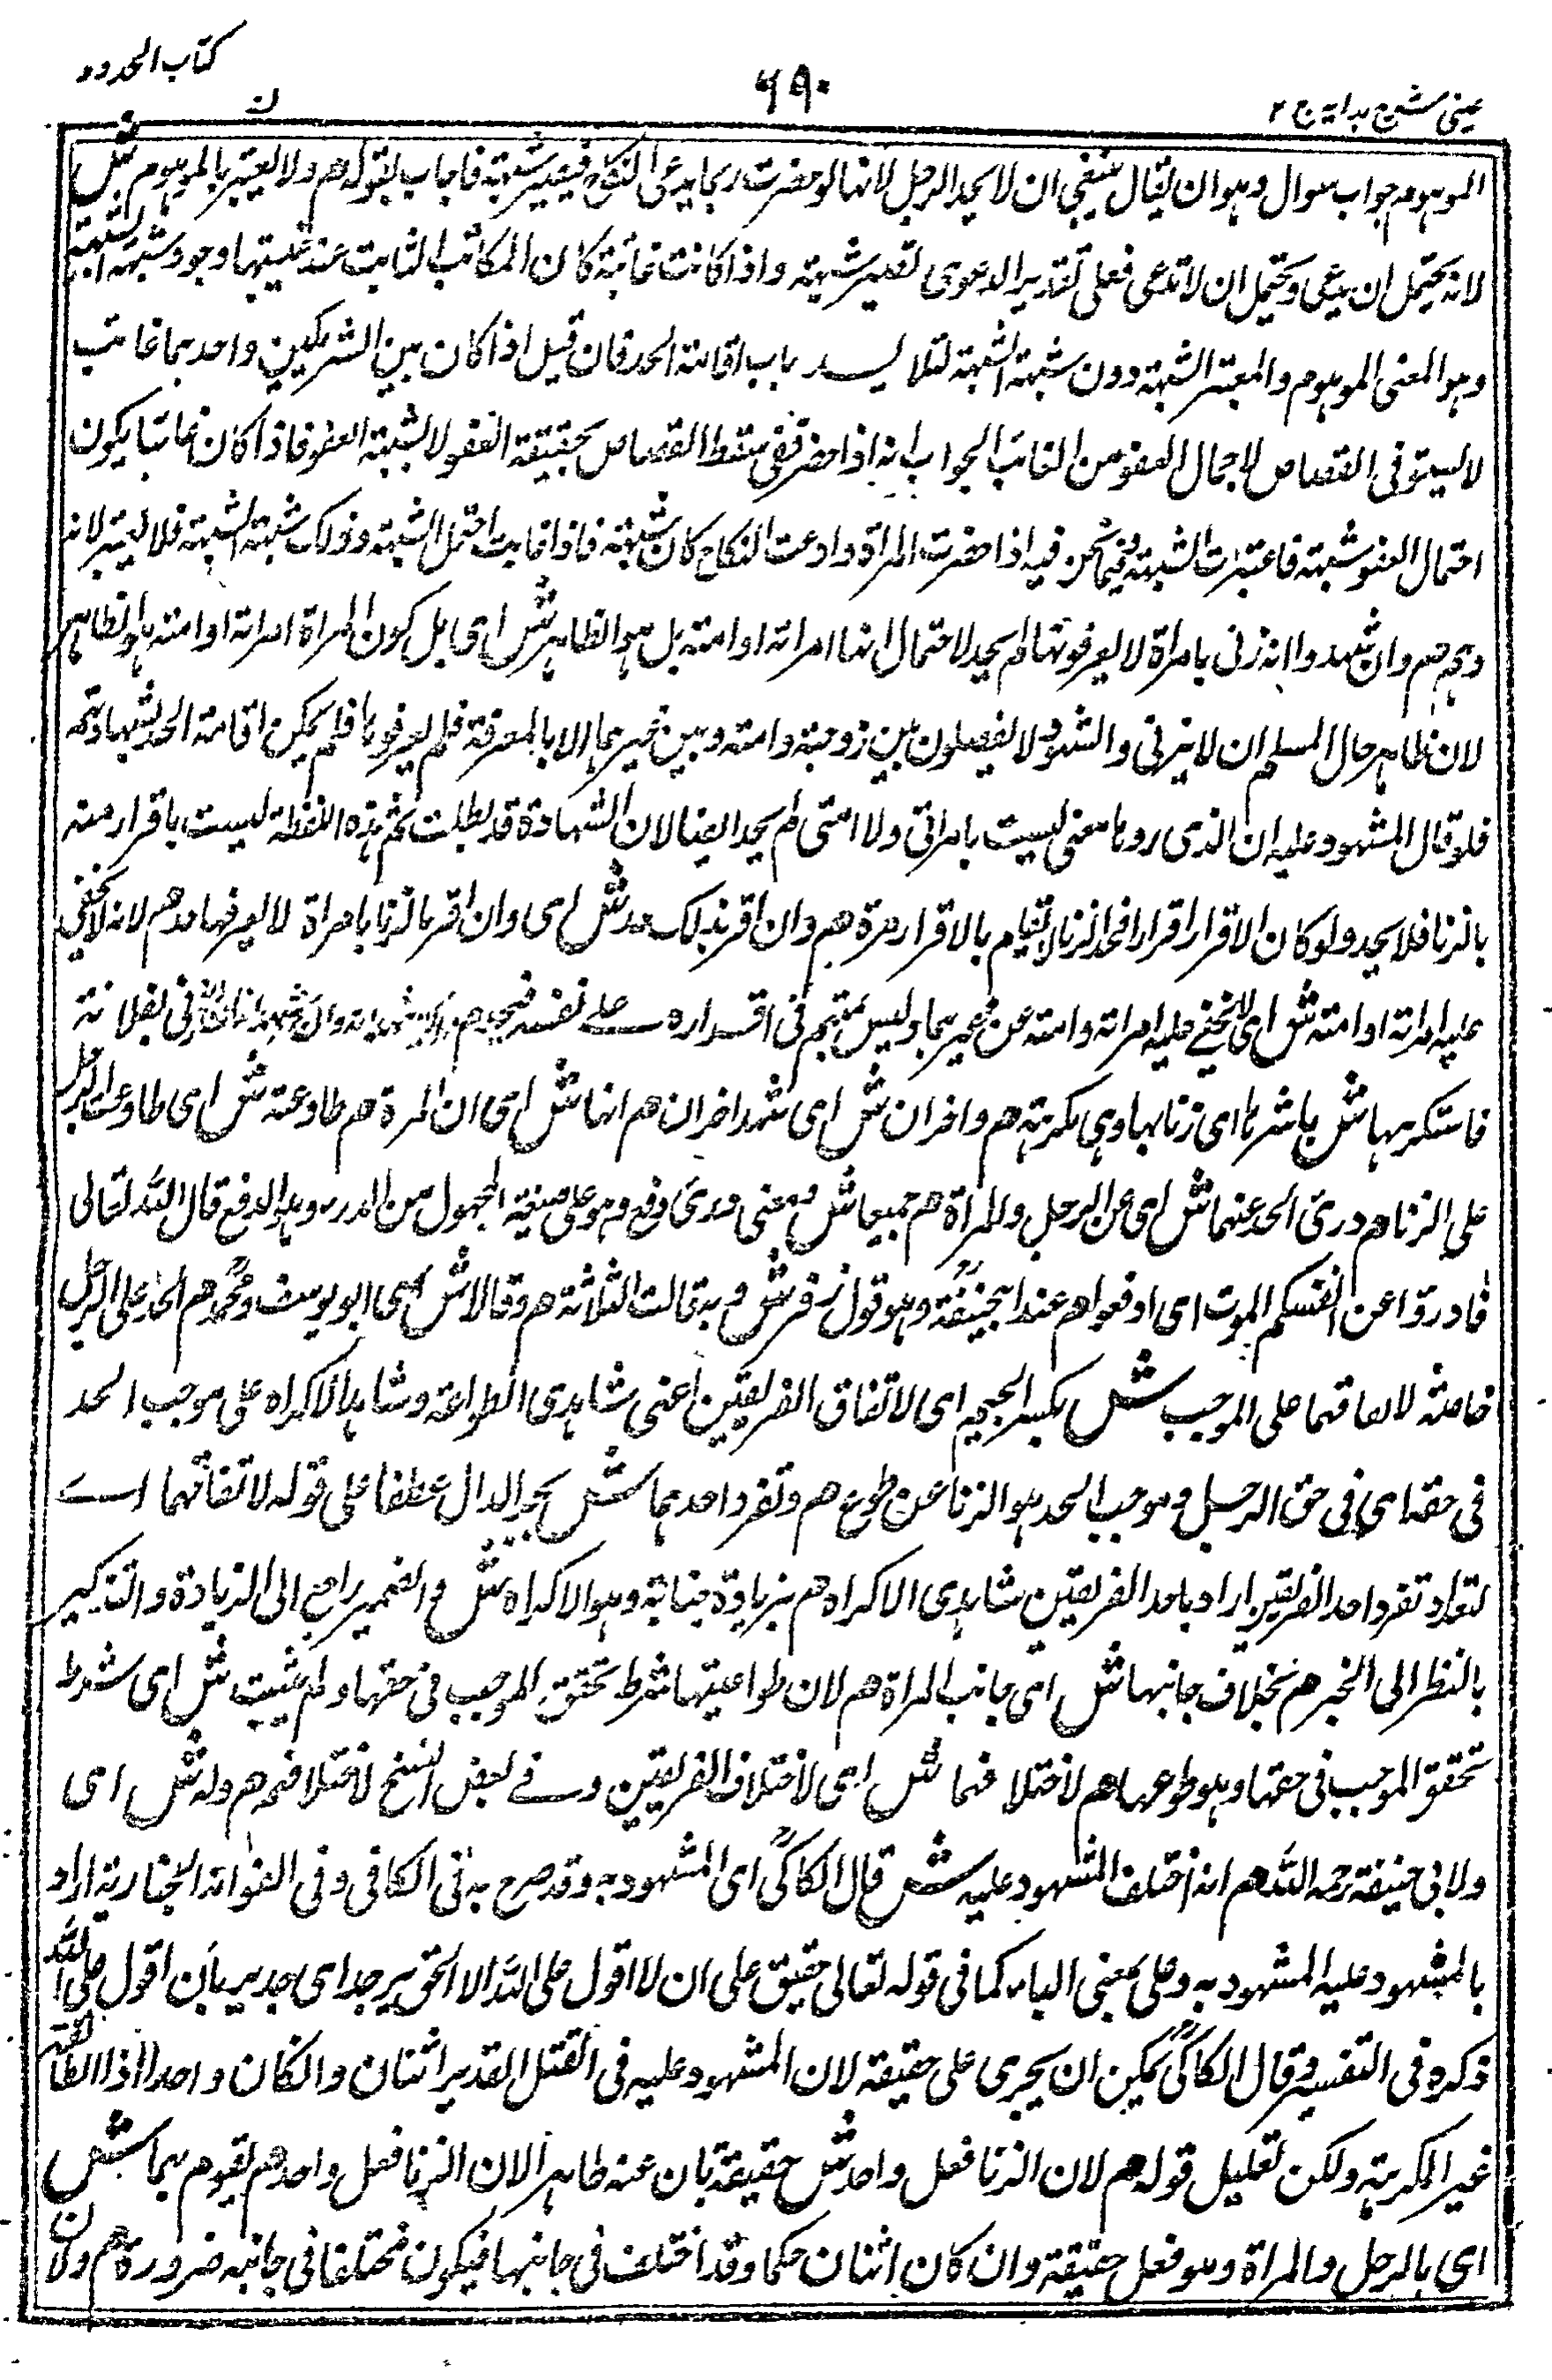 كتاب الحدود
٦٩٠
عينى شرح هدايه ج ٢
الموهوم جواب سوال وهو ان يقال ينبغي ان لا يحد الرجل لانها لو حضرت ربما يدعى النكاح فيصير شبهة فاجاب بقوله هم ولا يعتبر بالموهوم ش
لانه يحتمل ان يدعى ويحتمل ان لا تدعى فعلى تقدير الدعوى تصير شبهة واذا كانت غائبة كان الثابت عند غيبتها وجود شبهة الشبهة
وهو المعنى الموهوم والمعتبر الشبهة دون شبهة الشبهة لئلا ينسد باب اقامة الحد فان قيل اذا كان بين الشريكين واحدهما غائب
لا يستوفى القصاص لاحتمال العفو من الغائب الجواب انه اذا حضر يسقط القصاص بحقيقة العفو لا بشبهة العفو فاذا كان غائبا يكون
احتمال العفو شبهة فاعتبرت الشبهة وفيما نحن فيه اذا حضرت المراة وادعت النكاح كان شبهة فاذا غابت احتمل الشبهة وذلك شبهة الشبهة فلا يعتبر لانه
وهم هم وان شهدوا انه زنى بامراة لا يعرفونها لم يحد لاحتمال انها امراته او امته بل هو الظاهر ش اى بل كون المراة امراته او امته هو الظاهر
لان ظاهر حال المسلم ان لا يزنى والشهود لا يفصلون بين زوجته وامته وبين غيرهما الا بالمعرفة فلم يعرفوها فلم يمكن اقامة الحد بشهادتهم
فلو قال المشهود عليه ان الذى روها معى ليست بامراتى ولا امتى لم يحد ايضا لان الشهادة قد بطلت ثم هذه اللفظة ليست باقرار منه
بالزنا فلا يحد ولو كان الاقرار اقرارا فحد الزنا لا يقام بالاقرار مرة هم وان اقر بذلك حد ش اى وان اقر بالزنا بامراة لا يعرفها حد هم لانه لا يخفى
عليه امراته او امته ش اى لا يخفى عليه امراته وامته عن غيرهما وليس بمتهم فى اقراره على نفسه فيحد هم وان شهد اثنان انه زنى بفلانة
فاستكرهها ش باشرها اى زنا بها وهى مكرهة هم واخران ش اى شهد اخران هم انها ش اى ان المرة هم طاوعته ش اى طاوعت الرجل
على الزنا هم درئ الحد عنهما ش اى عن الرجل والمراة هم جميعا ش ومعنى درئ دفع وهو على صيغة المجهول من الدرء وهو الدفع قال الله تعالى
فادرؤا عن انفسكم الموت اى ادفعوا هم عند ابيحنيفة وهو قول زفر ش وبه قالت الثلاثة هم وقالا ش اى ابو يوسف ومحمد هم الحد على الرجل
خاصة لاتفاقهما على الموجب ش بكسر الجيم اى لاتفاق الفريقين اعنى شاهدى الطواعية وشاهدى الاكراه على موجب الحد
فى حقه اى فى حق الرجل وموجب الحد هو الزنا عن طوع هم وتفرد احدهما ش بجر الدال عطفا على قوله لاتفاقهما اى
لتفرد احد الفريقين اراد باحد الفريقين شاهدى الاكراه هم بزيادة جناية وهو الاكراه ش والضمير راجع الى الزيادة والتذكير
بالنظر الى الخبر هم بخلاف جانبها ش اى جانب المراة هم لان طواعيتها شرط تحقق الموجب فى حقها ولم يثبت ش اى شرط
تحقق الموجب فى حقها وهو طوعها هم لاختلافهما ش اى لاختلاف الفريقين وفى بعض النسخ لاختلافهم هم وله ش اى
ولابى حنيفة رحمه الله هم انه اختلف المشهود عليه ش قال الكاكى اى المشهود به وقد صرح به فى الكافى وفى الفوائد الخبازية اراد
بالمشهود عليه المشهود به وعلى بمعنى الباء كما فى قوله تعالى حقيق على ان لا اقول على الله الا الحق اى جدير بان اقول على الله
ذكره فى التفسير وقال الكاكى يمكن ان يجرى على حقيقة لان المشهود عليه فى القتل القدير اثنان والكان واحدا اذ الطائعة
غير المكرهة ولكن تعليل قوله هم لان الزنا فعل واحد ش حقيقة بان عنه ظاهر الان الزنا فعل واحد هم يقوم بهما ش
اى بالرجل والمراة وهو فعل حقيقة وان كان اثنان حكما وقد اختلف فى جانبها فيكون مختلفا فى جانبه ضرورة هم ولان